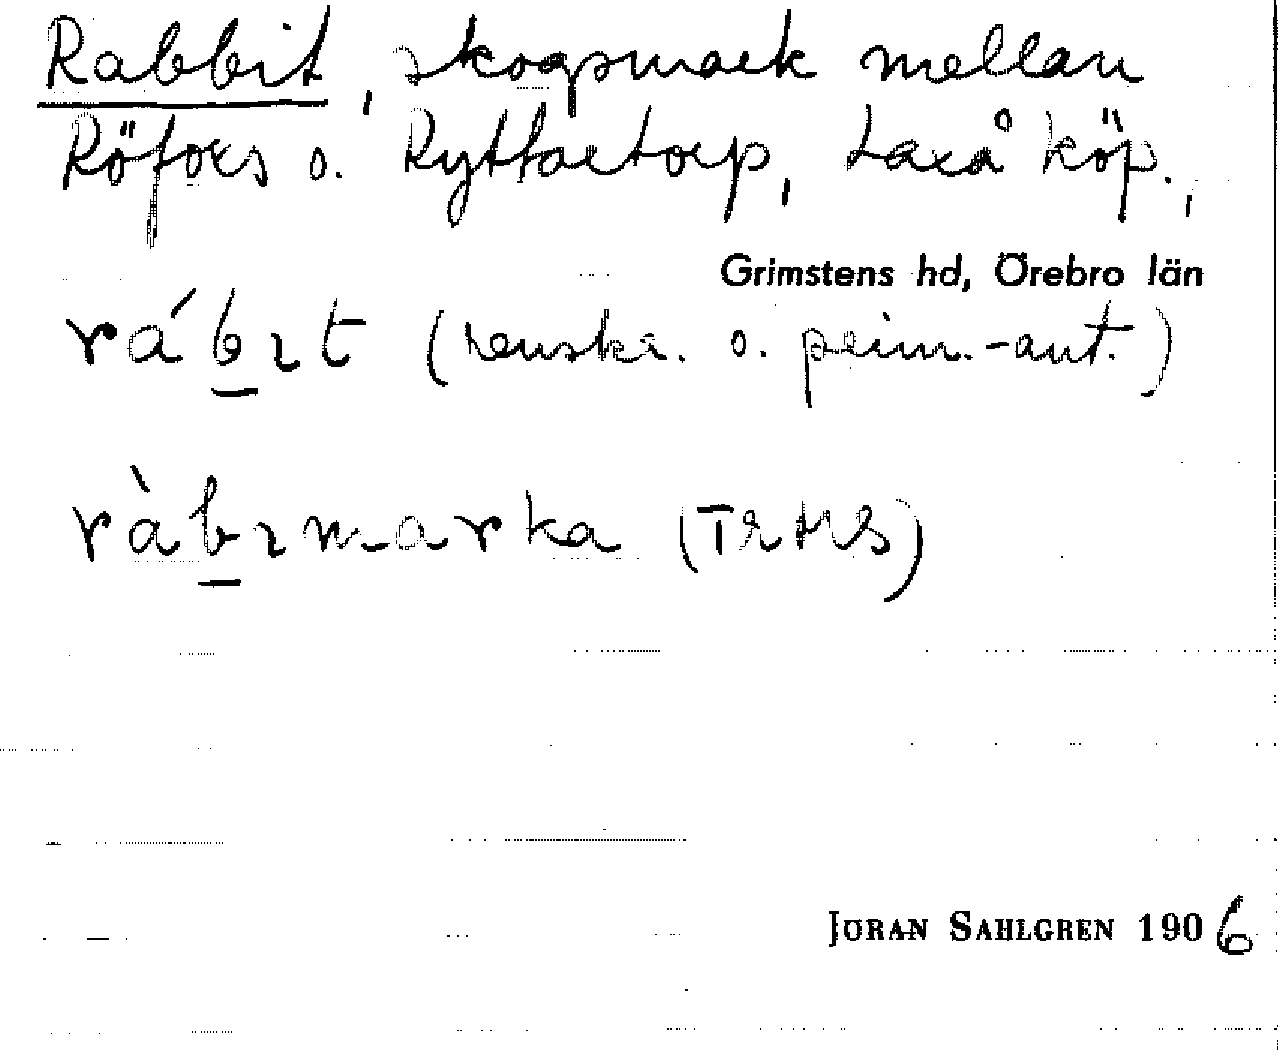 Rabbit, skogsmark mellan
Röfors o. Ryttartorp, Laxå köp.,
Grimstens hd, Örebro län
rábıt (renskr. o. prim.-ant.)
ràbımarka
JÖRAN SAHLGREN 1906